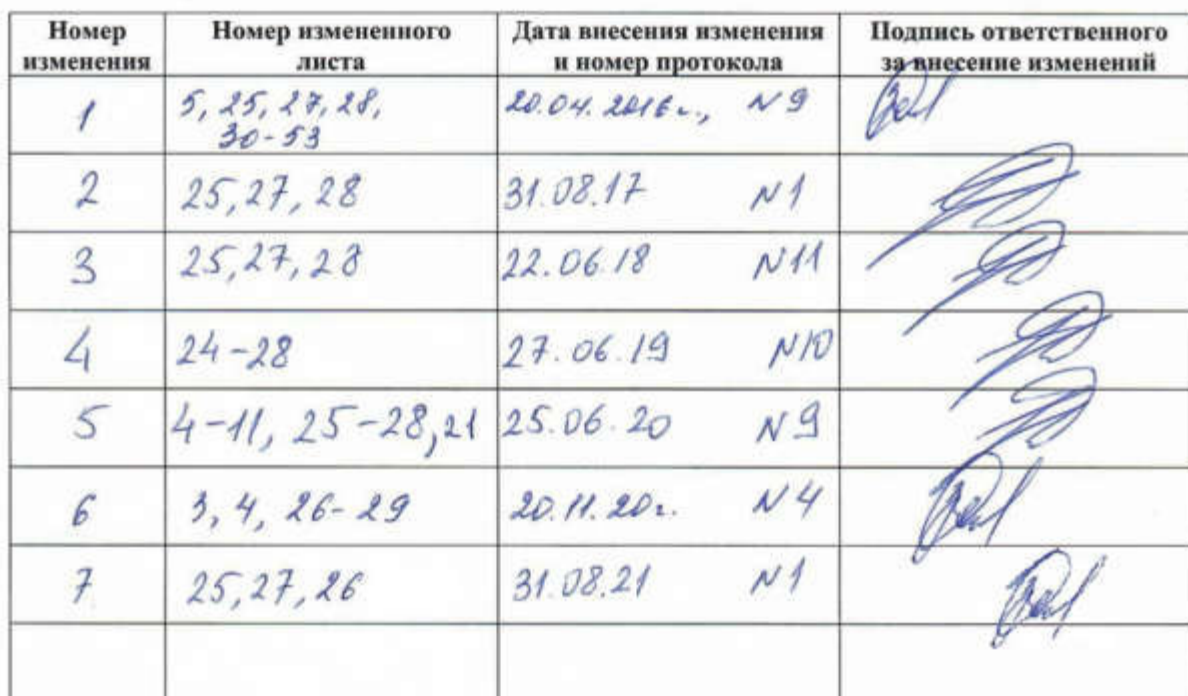 Номер изменения Номер измененного листа Дата внесения изменения и номер протокола Подпись ответственного за внесение изменений
1 5, 25, 27, 28, 30-53 20.04.2016г., N9
2 25, 27, 28 31.08.17 N1
3 25, 27, 28 22.06.18 N11
4 24-28 27.06.19 N10
5 4-11, 25-28, 21 25.06.20 N9
6 3, 4, 26-29 20.11.20г. N4
7 25, 27, 26 31.08.21 N1